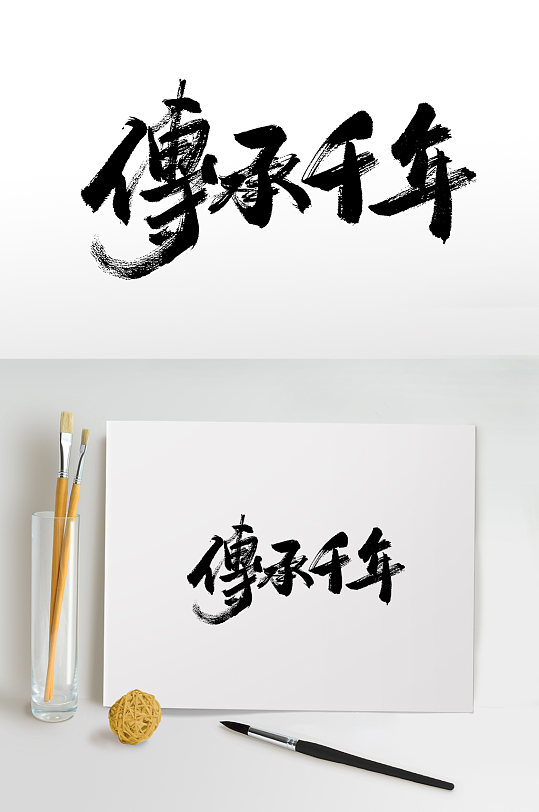 傳承千年
傳承千年